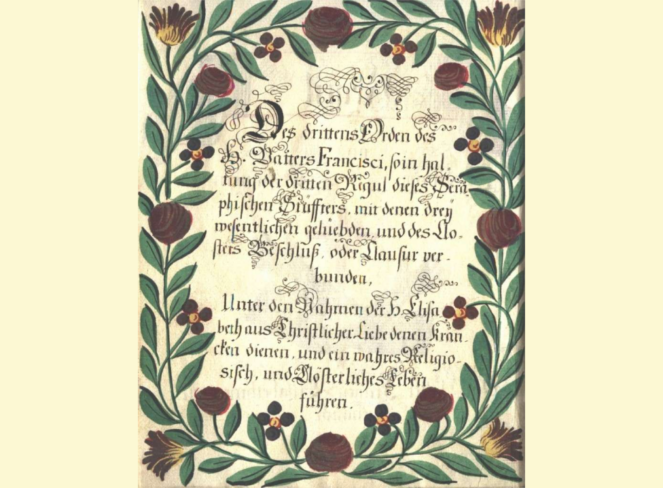 Des drittens Orden des
H. Vatters Francisci, so in hal-
tung der dritten Regul dieses Sera
phischen Stüffters, mit denen drey
wesentlichen geliebden, und des Clo-
sters Beschluß, oder Clausur ver-
bunden,
Unter den Nahmen der H. Elisa
beth aus Christlicher Liebe denen Kran-
cken dienen, und ein wahres Religio-
sisch, und Clösterliches Leben
führen.